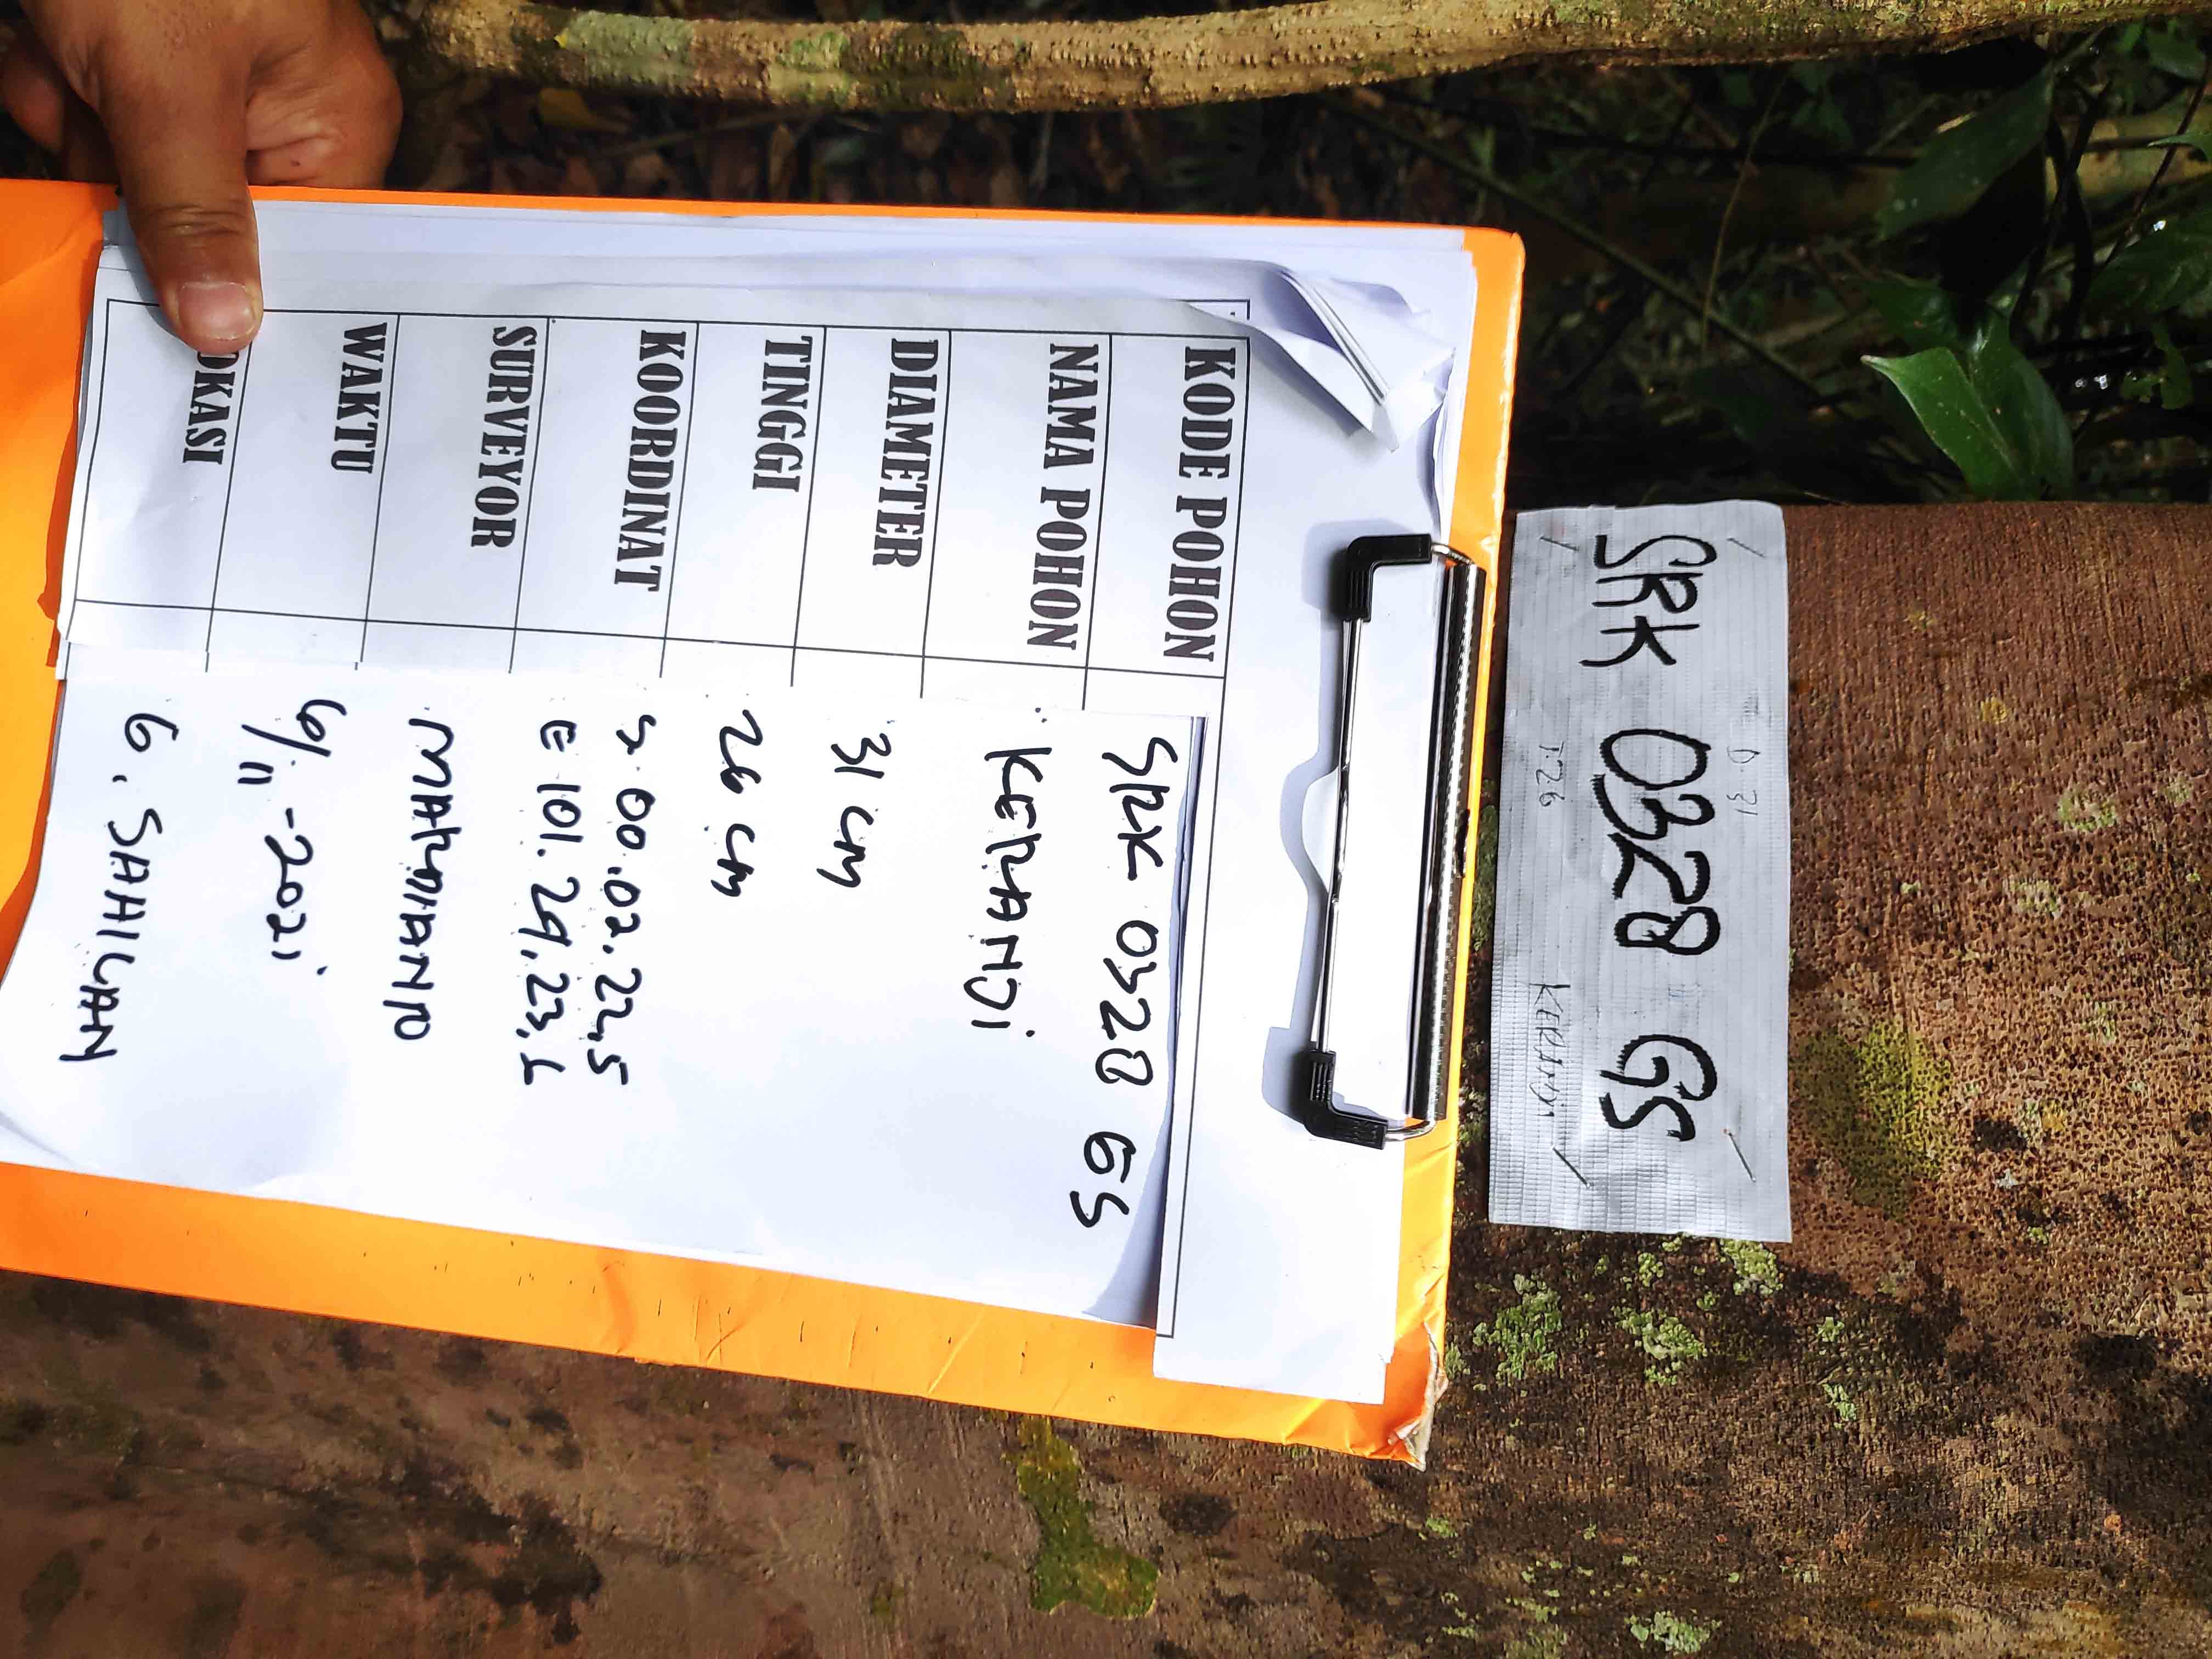 D. 31
SRK 0328 GS
T.26 KERANJI
KODE POHON SRK 0328 GS
NAMA POHON KERANJI
DIAMETER 31 CM
TINGGI 26 CM
KOORDINAT S 00.02.22,5
E 101.29.23,6
SURVEYOR MARDIANTO
WAKTU 6/11-2021
OKASI G. SAHILAN